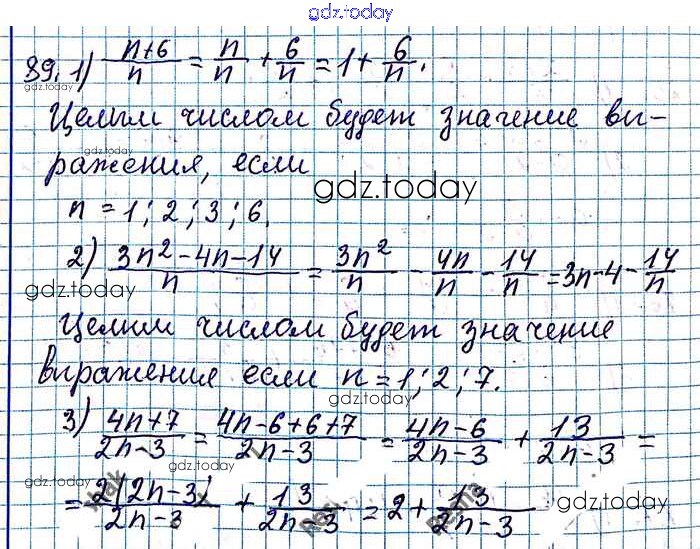 gdz.today
89. 1) (n+6)/n = n/n + 6/n = 1 + 6/n.
gdz.today
Целым числом будет значение вы-
gdz.today
ражения, если
gdz.today
n = 1; 2; 3; 6.
2) (3n² - 4n - 14)/n = 3n²/n - 4n/n - 14/n = 3n - 4 - 14/n
gdz.today
Целым числом будет значение
выражения если n = 1; 2; 7.
gdz.today
3) (4n+7)/(2n-3) = (4n-6+6+7)/(2n-3) = (4n-6)/(2n-3) + 13/(2n-3) =
gdz.today
= 2(2n-3)/(2n-3) + 13/(2n-3) = 2 + 13/(2n-3)
gdz.today